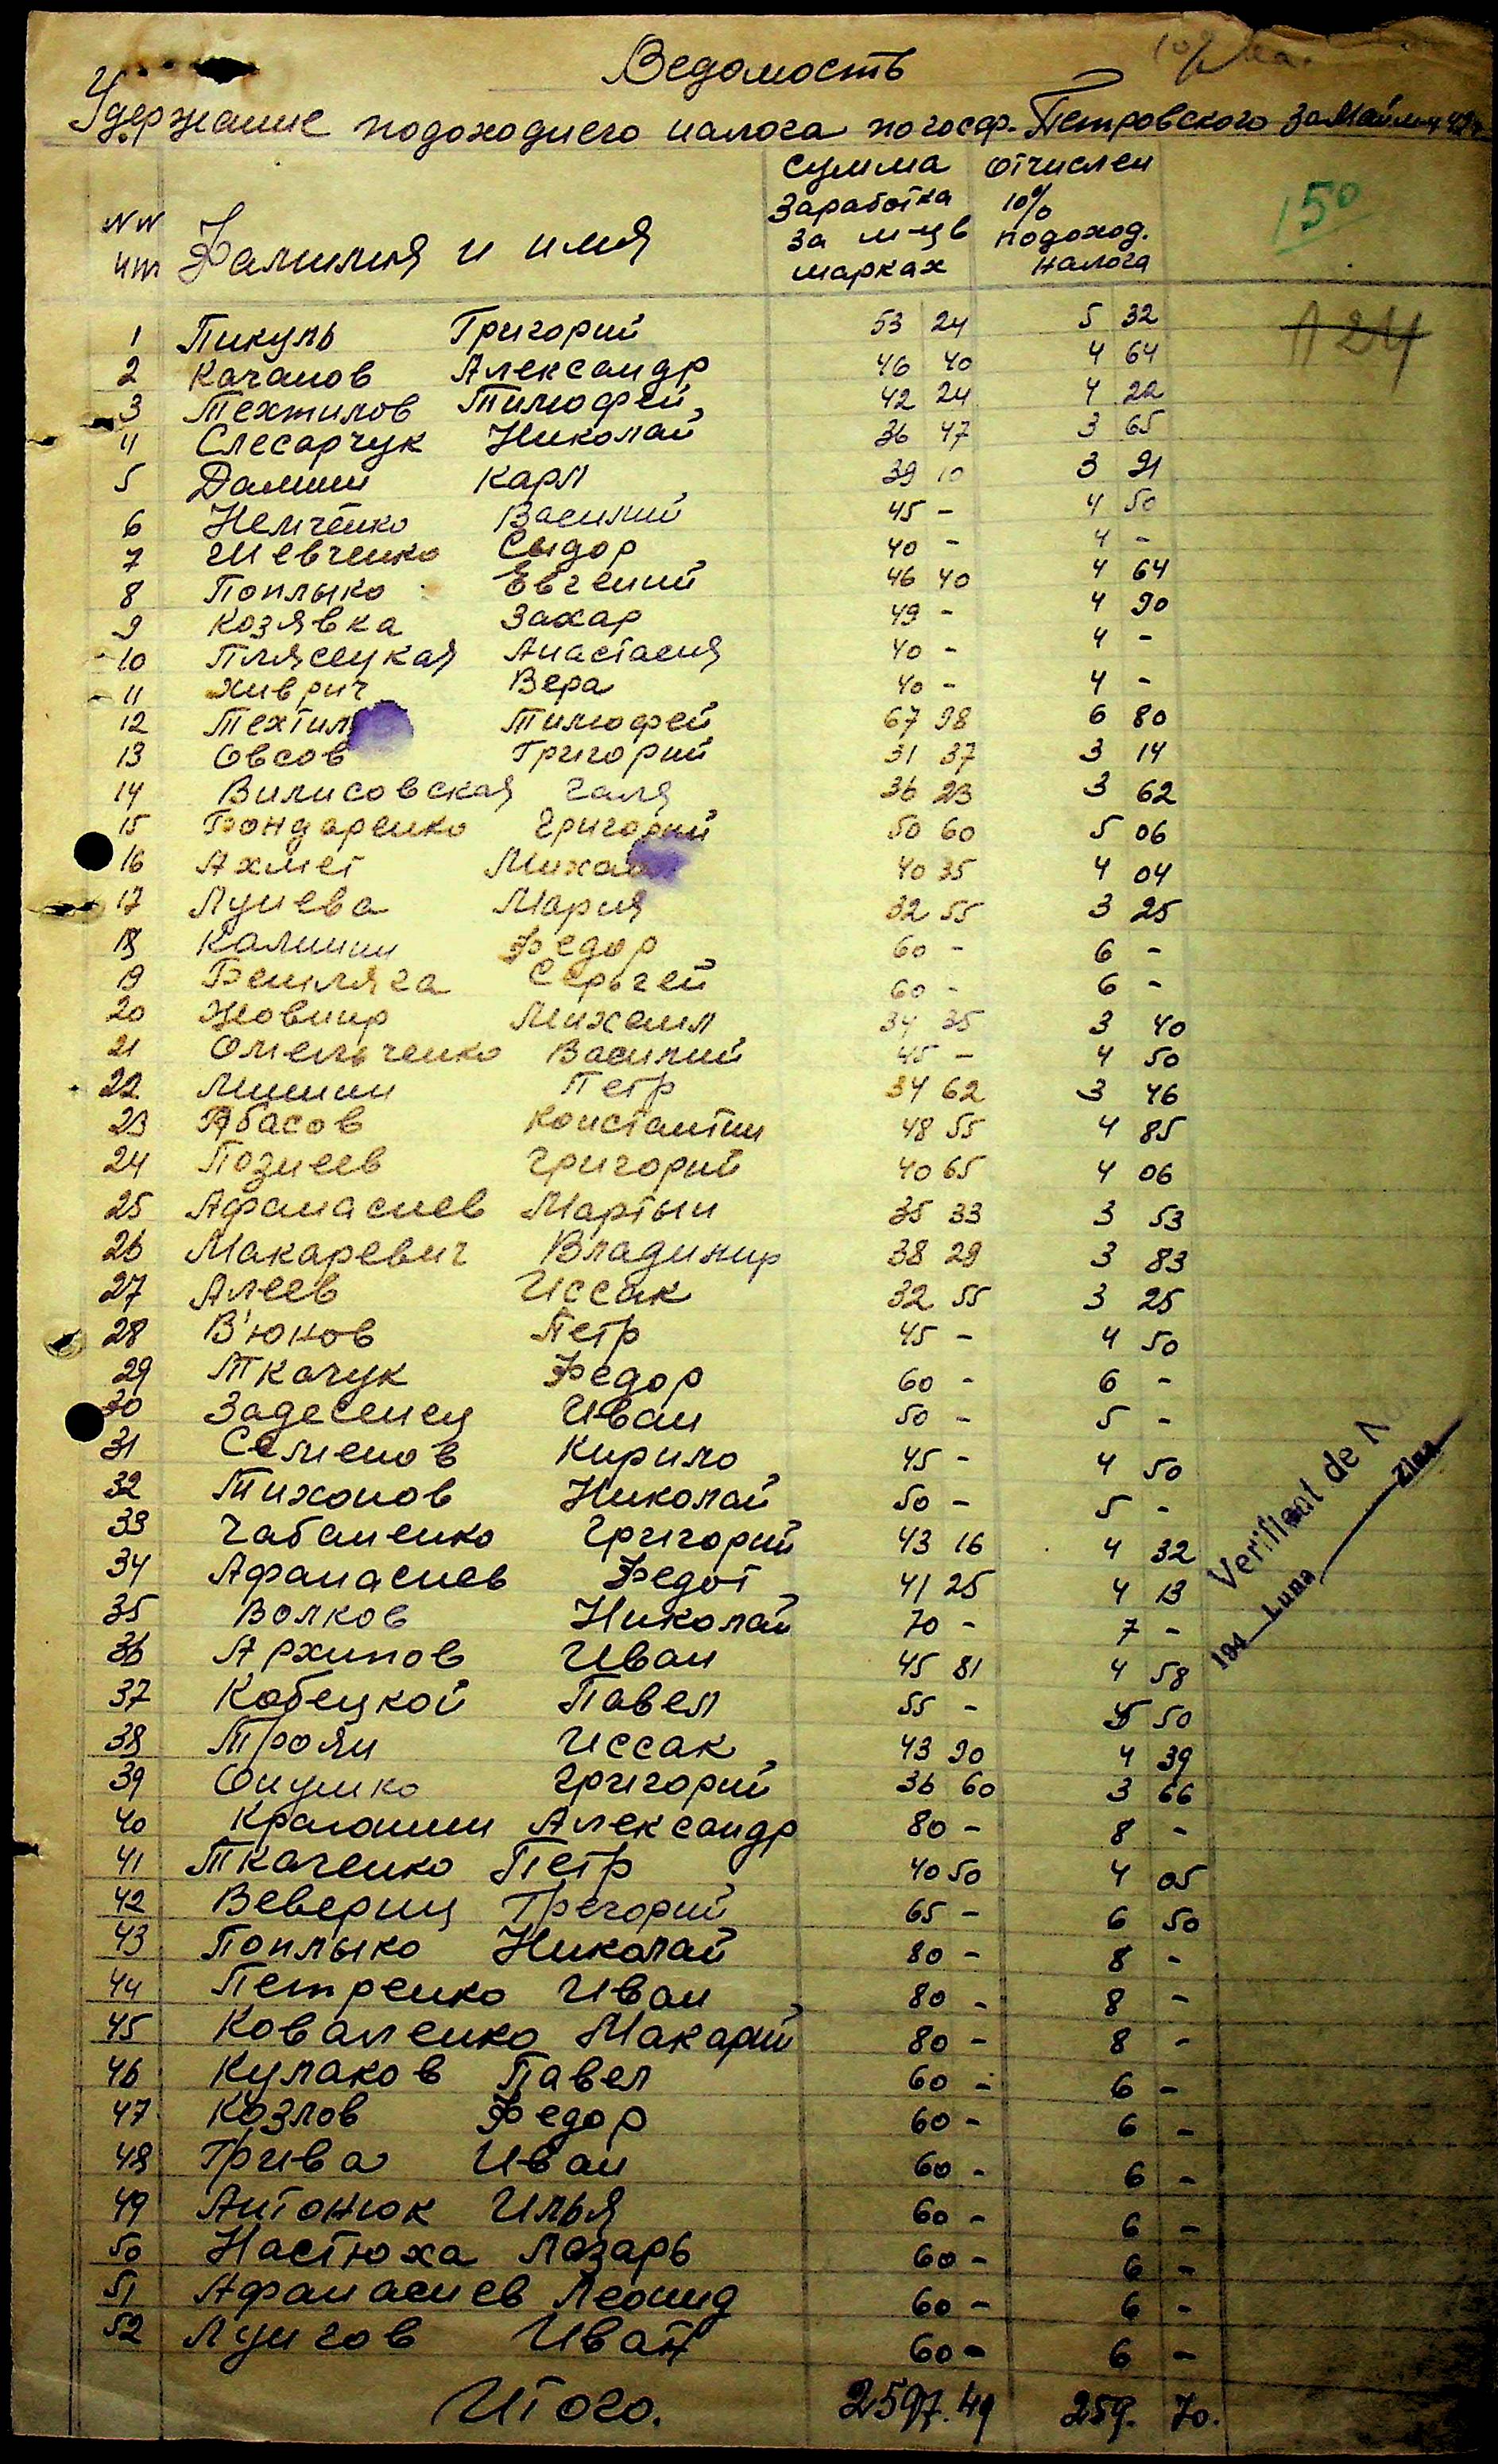 Ведомость
Удержание подоходнего налога по госф. Петровского за Май м-ц 42г
NN
пп
Фамилия и имя
сумма
Заработка
За м-ц в
марках
отчислен
10%
подоход.
налога
150
124
1 Пикуль Григорий 53 24 5 32
2 Качанов Александр 46 40 4 64
3 Техтилов Тимофей 42 24 4 22
4 Слесарчук Николай 36 47 3 65
5 Далин Карл 39 10 3 91
6 Немченко Василий 45 - 4 50
7 Шевченко Сыдор 40 - 4 -
8 Поплыко Евгений 46 40 4 64
9 Козявка Захар 49 - 4 90
10 Плясецкая Анастасия 40 - 4 -
11 Живрич Вера 40 - 4 -
12 Техтил Тимофей 67 98 6 80
13 Овсов Григорий 31 37 3 14
14 Вилисовская Галя 36 23 3 62
15 Бондаренко Григорий 50 60 5 06
16 Ахмет Михаи 40 35 4 04
17 Лунева Мария 32 55 3 25
18 Калинин Федор 60 - 6 -
19 Бешляга Серьгей 60 - 6 -
20 Жовнир Михаил 34 35 3 40
21 Омельченко Василий 45 - 4 50
22 Мишин Петр 34 62 3 46
23 Абасов Константин 48 55 4 85
24 Познеев Григорий 40 65 4 06
25 Афанасиев Мартын 35 33 3 53
26 Макаревич Владимир 38 29 3 83
27 Алеев Иссак 32 55 3 25
28 В'юнов Петр 45 - 4 50
29 Ткачук Федор 60 - 6 -
30 Задесенец Иван 50 - 5 -
31 Семенов Кирило 45 - 4 50
32 Тихонов Николай 50 - 5 -
33 Чабаненко Григорий 43 16 4 32
34 Афанасиев Федот 41 25 4 13
35 Волков Николай 70 - 7 -
36 Архипов Иван 45 81 4 58
37 Кобецкой Павел 55 - 5 50
38 Троян Иссак 43 90 4 39
39 Онушко Григорий 36 60 3 66
40 Крагошин Александр 80 - 8 -
41 Ткаченко Петр 40 50 4 05
42 Вевериц Грегорий 65 - 6 50
43 Поплыко Николай 80 - 8 -
44 Петренко Иван 80 - 8 -
45 Коваленко Макарий 80 - 8 -
46 Кулаков Павел 60 - 6 -
47 Козлов Федор 60 - 6 -
48 Грива Иван 60 - 6 -
49 Антонюк Илья 60 - 6 -
50 Настюха Лазарь 60 - 6 -
51 Афанасиев Леонид 60 - 6 -
52 Лунгов Иван 60 - 6 -
Итого. 2597.49 259. 70.
Verificat de
194 Luna Ziua